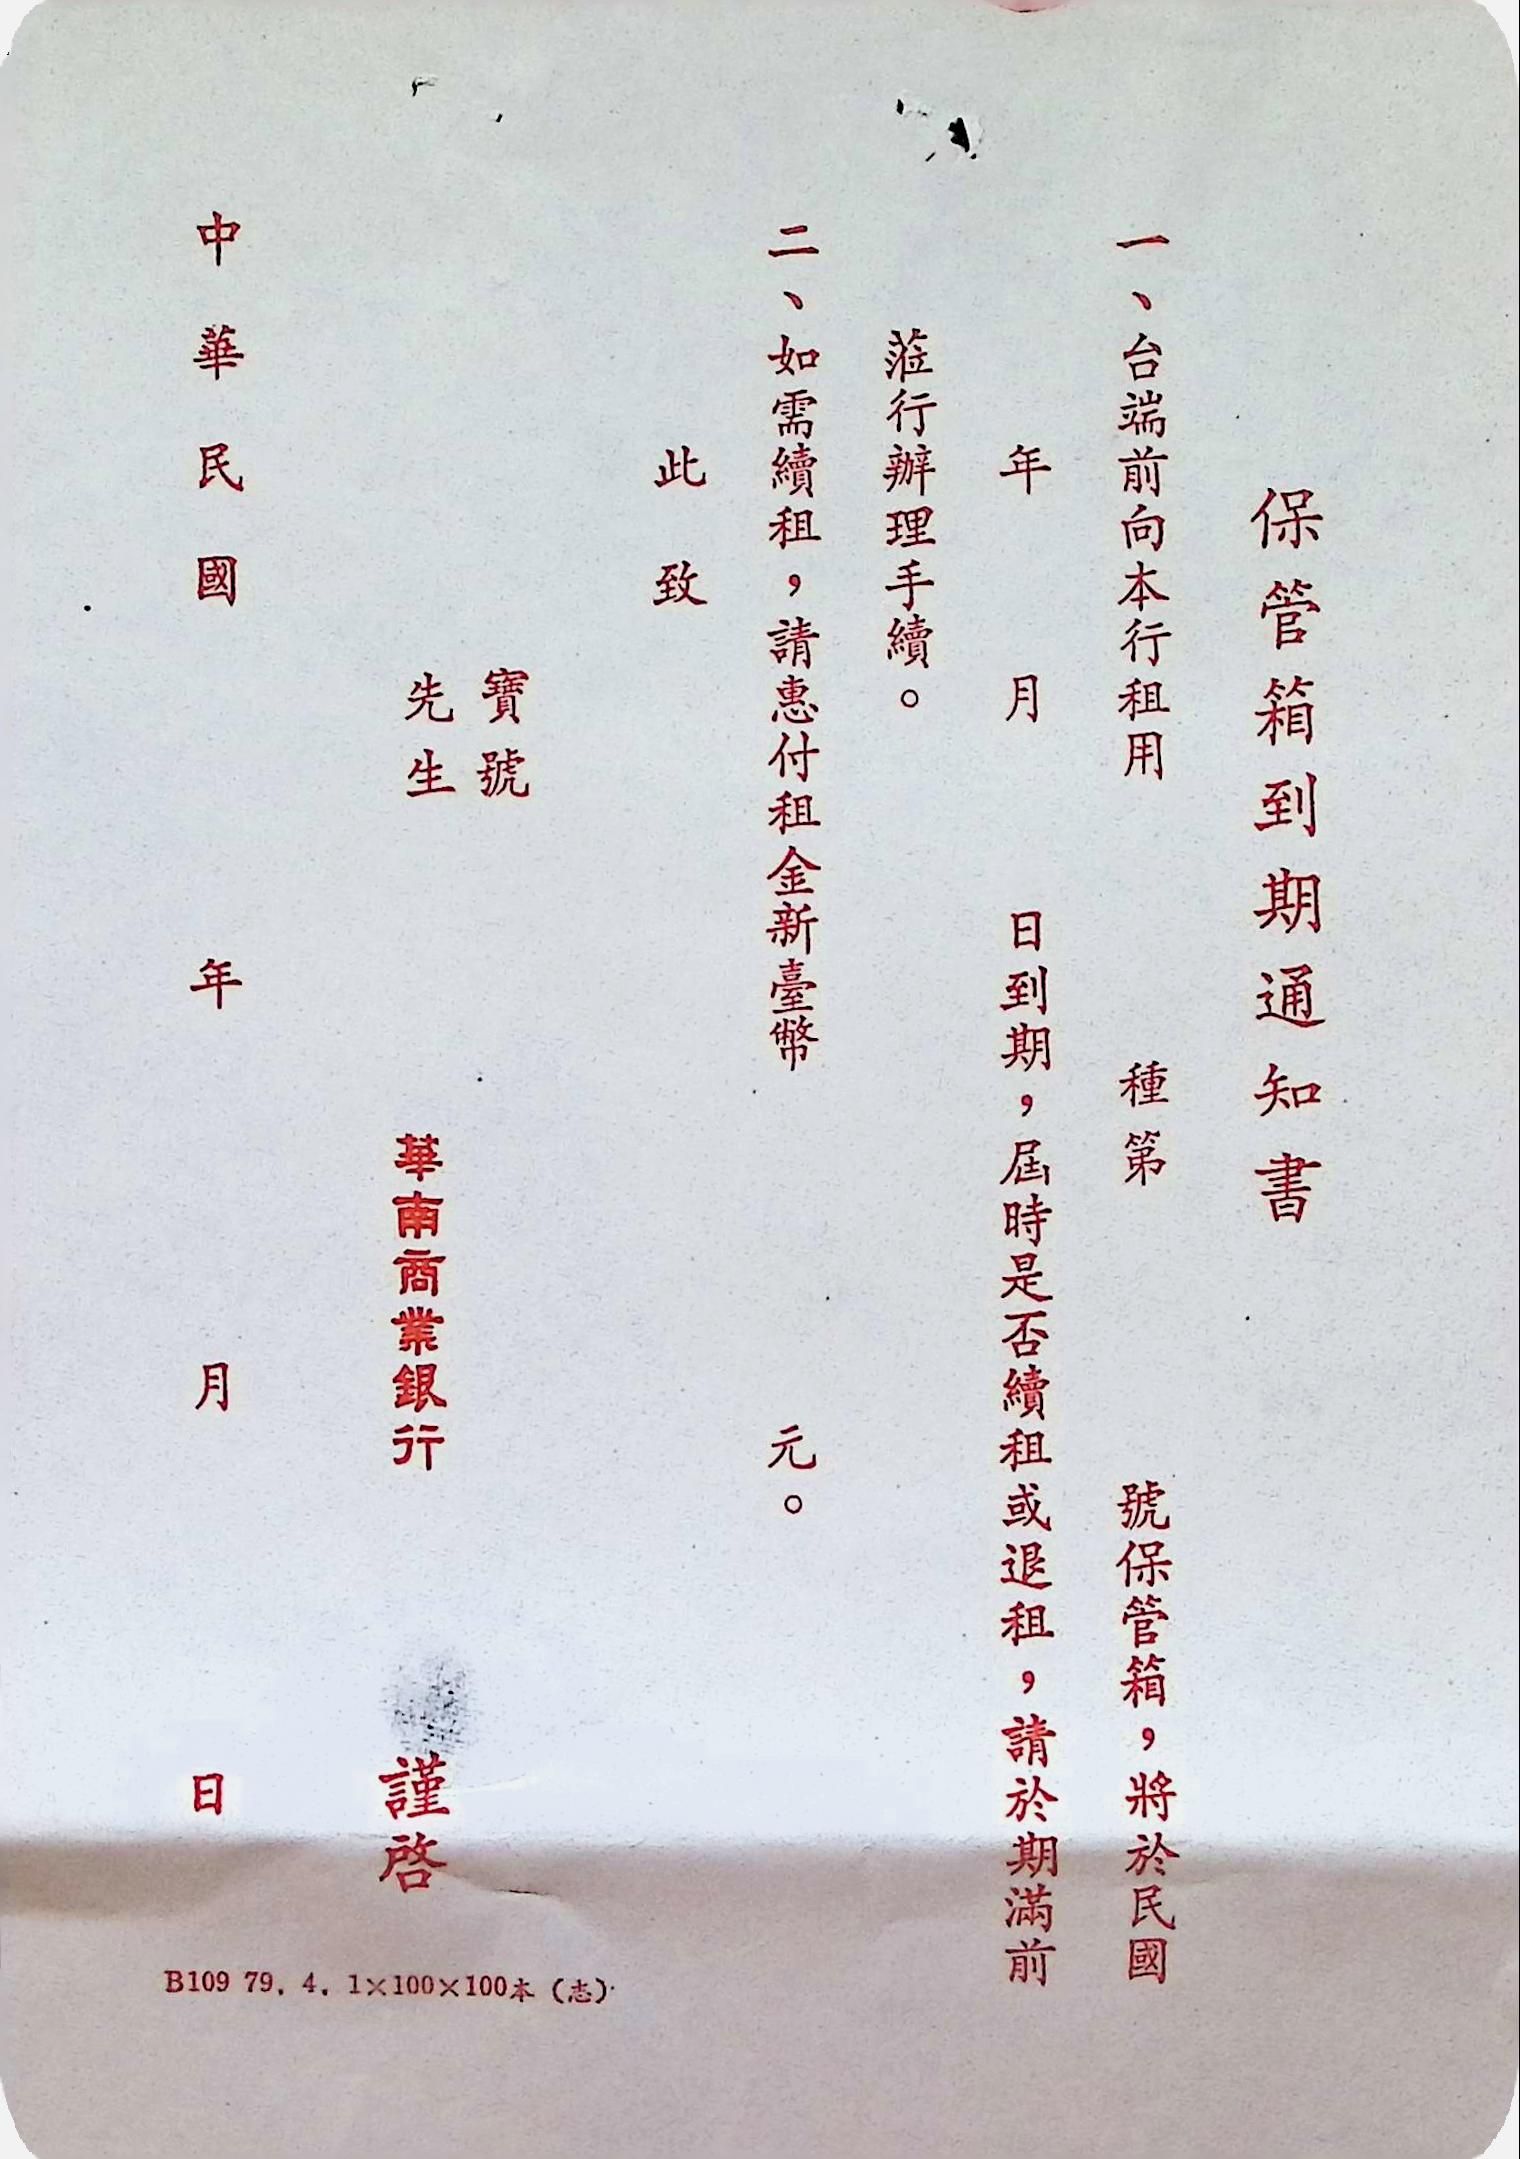 保管箱到期通知書
一、台端前向本行租用　種第　號保管箱，將於民國
年　月　日到期，屆時是否續租或退租，請於期滿前
蒞行辦理手續。
二、如需續租，請惠付租金新臺幣　元。
此致
寶號
先生
華南商業銀行　謹啓
中華民國　年　月　日
B109 79. 4. 1×100×100本（志）